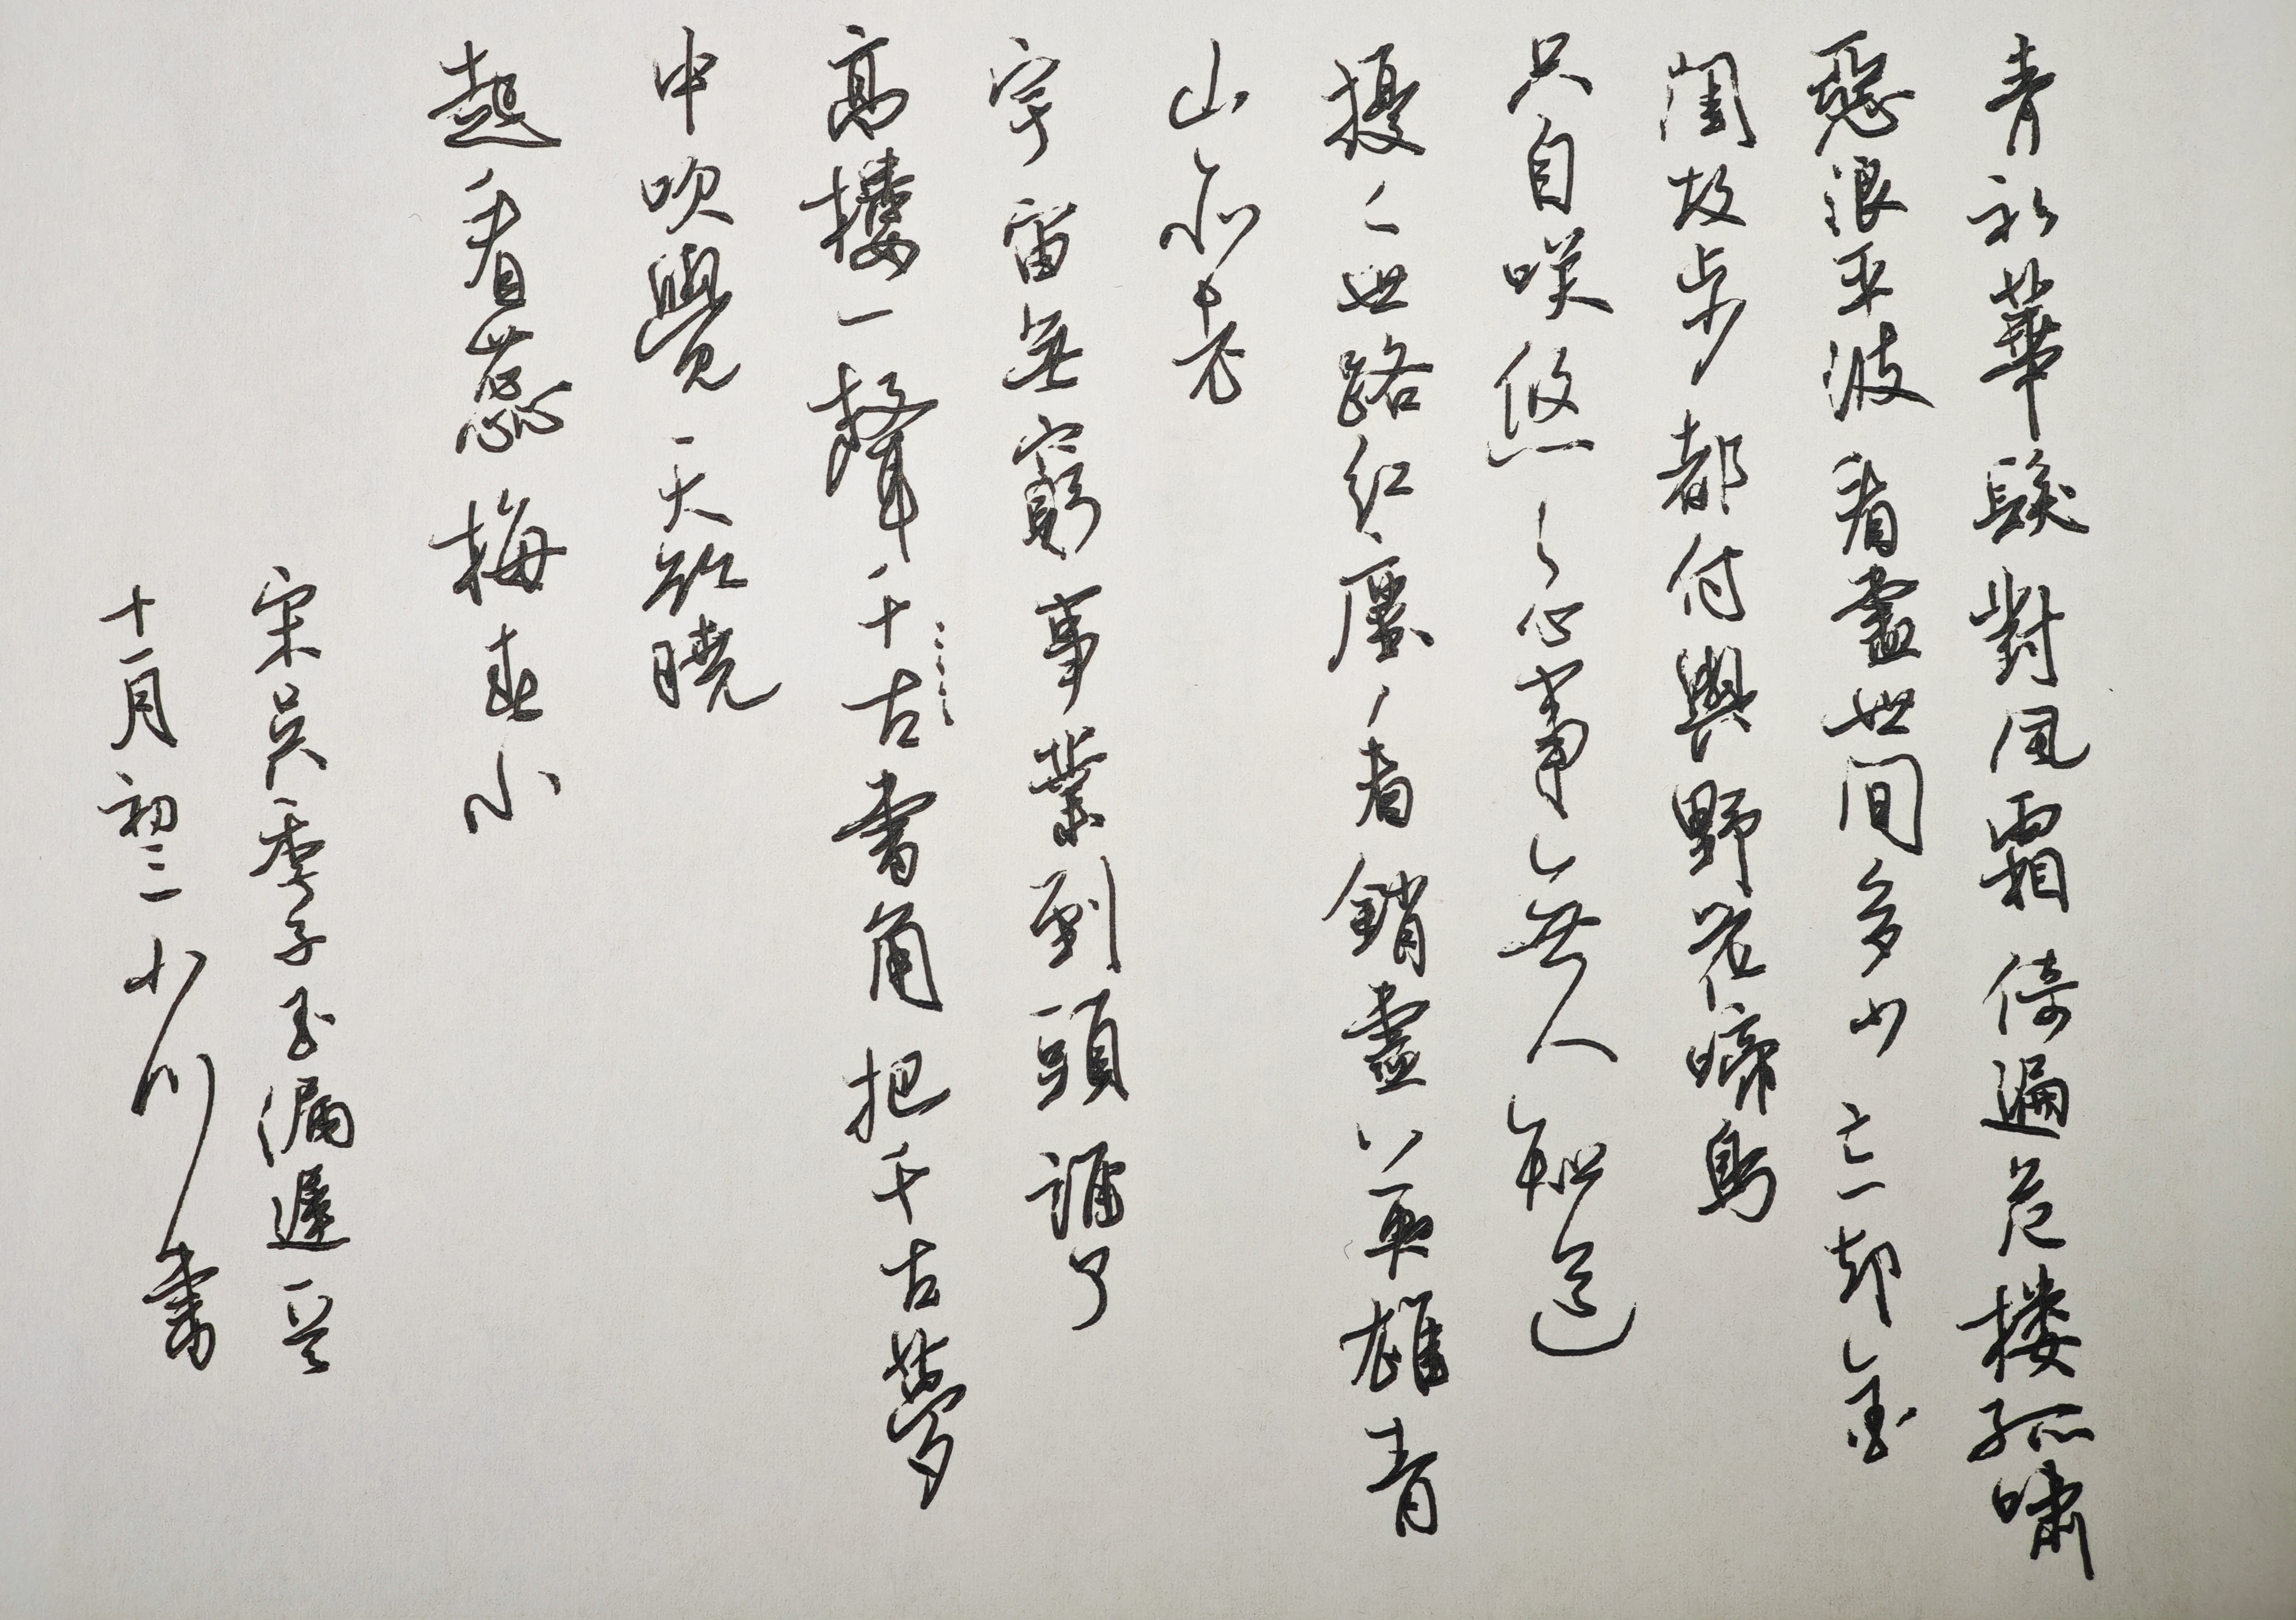 青衫華髮對風霜倚遍危楼孤嘯
惡浪平波看盡世間多少忘却金
閨故步都付與野花啼鳥
只自咲悠悠心事無人知道
擾擾世路紅塵看銷盡英雄青
山亦老
宇宙無窮事業到頭誰了
高樓一聲千古畫角把千古夢
中吹覺天欲曉
起看蕊梅春小
宋吳季子玉漏遲一首
十一月初二小川書